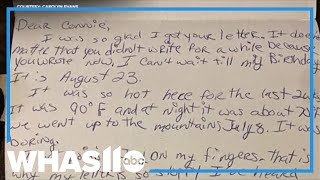 COURTESY: CAROLYN EVANS
Dear Connie,
I was so glad I got your letter. It does
matter that you didn't write for a while because
you wrote now. I can't wait till my Birthday
It is August 23.
It was so hot here for the last 2
It was 90°F and at night it was about
we went up to the mountains July 8. It was
boring.
on my fingers. that is
why my letter is so sloppy I've heard
WHAS11 abc